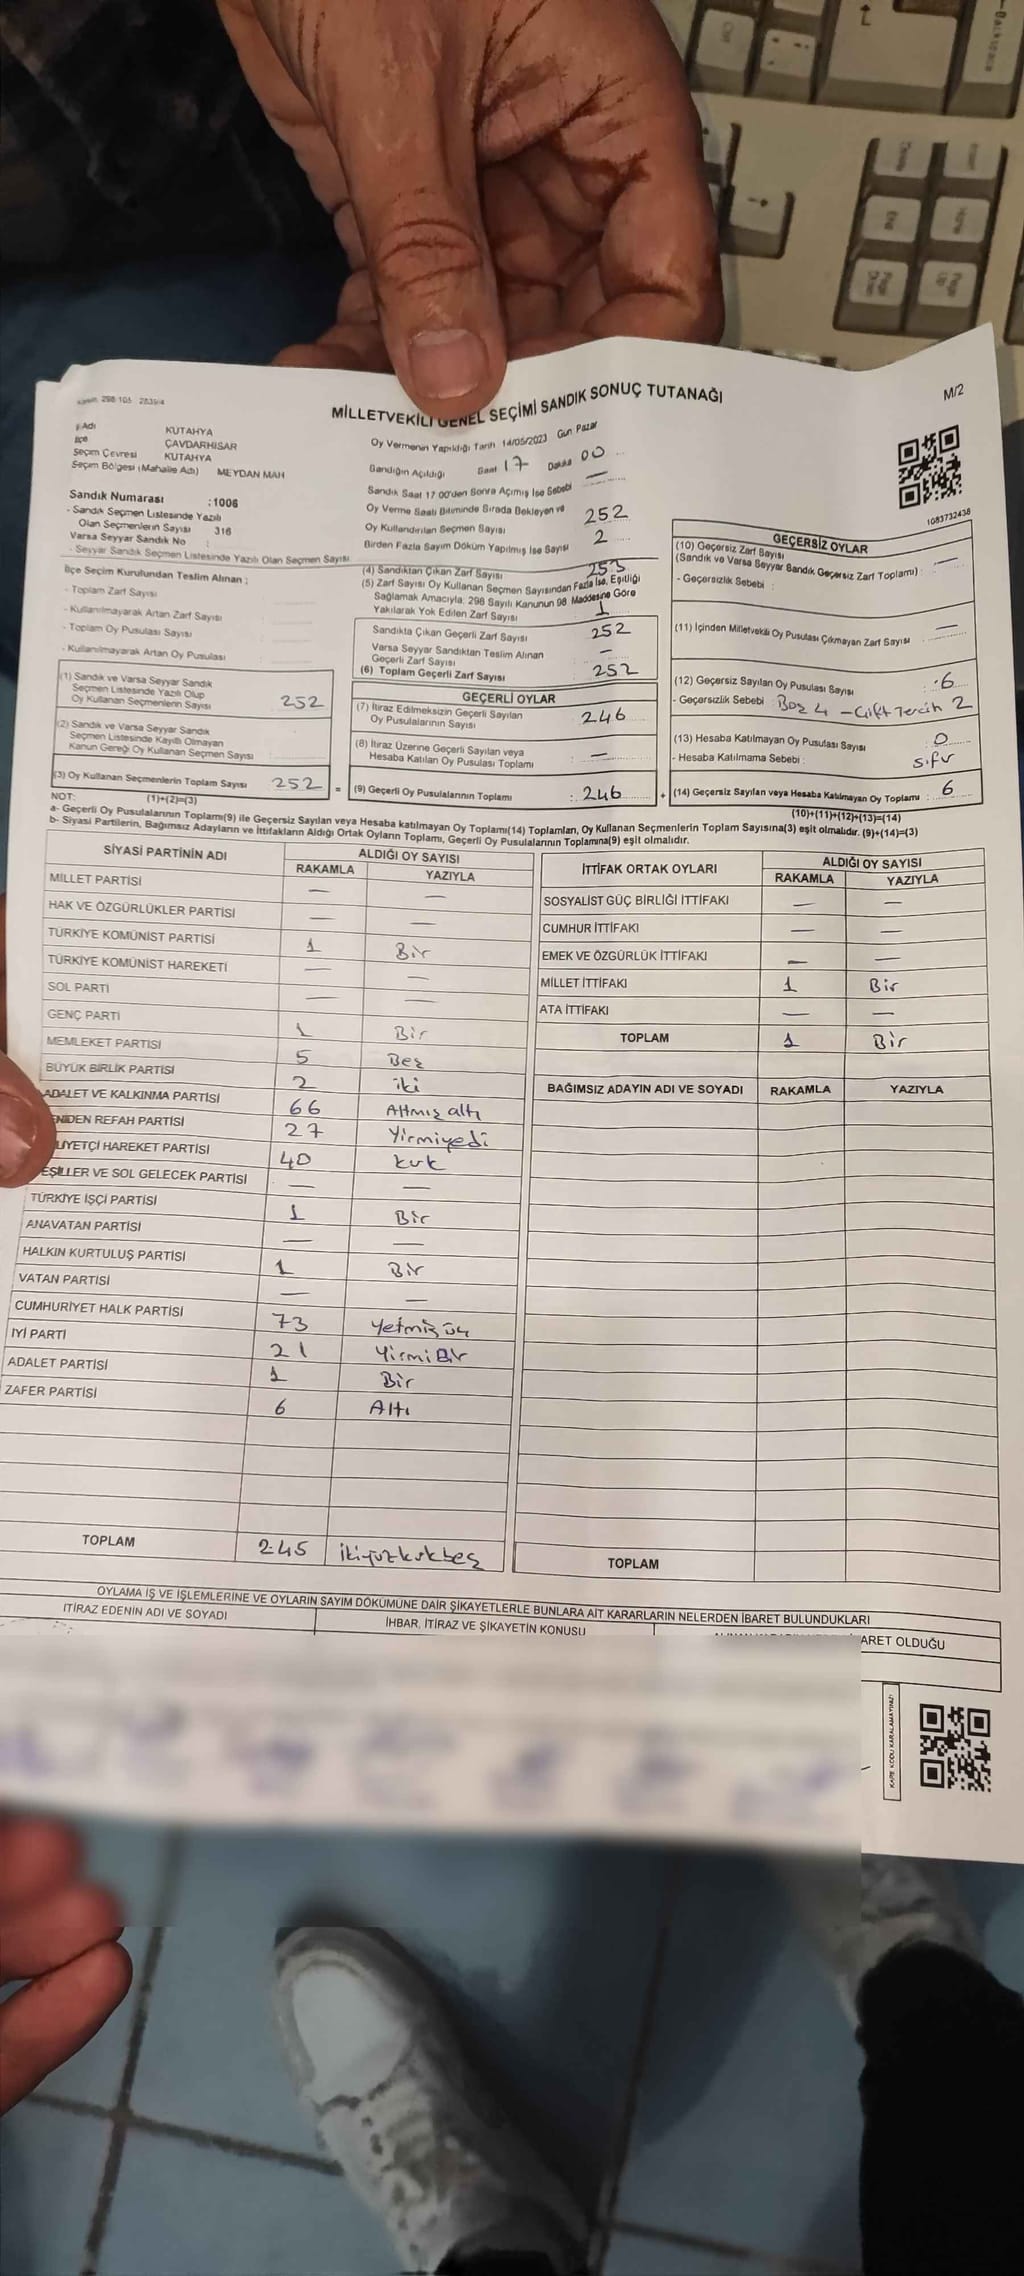 MİLLETVEKİLİ GENEL SEÇİMİ SANDIK SONUÇ TUTANAĞI
M/2
İl Adı KÜTAHYA
İlçe ÇAVDARHİSAR
Seçim Çevresi KÜTAHYA
Seçim Bölgesi (Mahalle Adı) MEYDAN MAH
Sandık Numarası :1006
- Sandık Seçmen Listesinde Yazılı
Olan Seçmenlerin Sayısı 316
Varsa Seyyar Sandık No :
- Seyyar Sandık Seçmen Listesinde Yazılı Olan Seçmen Sayısı
Oy Vermenin Yapıldığı Tarih 14/05/2023 Gün Pazar
Sandığın Açıldığı Saat 17 Dakika 00
Sandık Saat 17 00'den Sonra Açılmış İse Sebebi —
Oy Verme Saati Bitiminde Sırada Bekleyen ve
Oy Kullandırılan Seçmen Sayısı 252
Birden Fazla Sayım Döküm Yapılmış İse Sayısı 2
1083732438
İlçe Seçim Kurulundan Teslim Alınan ;
- Toplam Zarf Sayısı
- Kullanılmayarak Artan Zarf Sayısı
- Toplam Oy Pusulası Sayısı
- Kullanılmayarak Artan Oy Pusulası
(1) Sandık ve Varsa Seyyar Sandık
Seçmen Listesinde Yazılı Olup
Oy Kullanan Seçmenlerin Sayısı : 252
(2) Sandık ve Varsa Seyyar Sandık
Seçmen Listesinde Kayıtlı Olmayan
Kanun Gereği Oy Kullanan Seçmen Sayısı :
(3) Oy Kullanan Seçmenlerin Toplam Sayısı 252
(1)+(2)=(3)
(4) Sandıktan Çıkan Zarf Sayısı 253
(5) Zarf Sayısı Oy Kullanan Seçmen Sayısından Fazla İse, Eşitliği
Sağlamak Amacıyla, 298 Sayılı Kanunun 98 Maddesine Göre
Yakılarak Yok Edilen Zarf Sayısı 1
Sandıkta Çıkan Geçerli Zarf Sayısı 252
Varsa Seyyar Sandıktan Teslim Alınan
Geçerli Zarf Sayısı : —
(6) Toplam Geçerli Zarf Sayısı : 252
GEÇERLİ OYLAR
(7) İtiraz Edilmeksizin Geçerli Sayılan
Oy Pusulalarının Sayısı : 246
(8) İtiraz Üzerine Geçerli Sayılan veya
Hesaba Katılan Oy Pusulası Toplamı : —
= (9) Geçerli Oy Pusulalarının Toplamı : 246
GEÇERSİZ OYLAR
(10) Geçersiz Zarf Sayısı
(Sandık ve Varsa Seyyar Sandık Geçersiz Zarf Toplamı) : —
- Geçersizlik Sebebi :
(11) İçinden Milletvekili Oy Pusulası Çıkmayan Zarf Sayısı —
(12) Geçersiz Sayılan Oy Pusulası Sayısı : 6
- Geçersizlik Sebebi : Boş 4 - Çift Tercih 2
(13) Hesaba Katılmayan Oy Pusulası Sayısı : 0
- Hesaba Katılmama Sebebi : sıfır
+ (14) Geçersiz Sayılan veya Hesaba Katılmayan Oy Toplamı : 6
(10)+(11)+(12)+(13)=(14)
NOT:
a- Geçerli Oy Pusulalarının Toplamı(9) ile Geçersiz Sayılan veya Hesaba katılmayan Oy Toplamı(14) Toplamları, Oy Kullanan Seçmenlerin Toplam Sayısına(3) eşit olmalıdır. (9)+(14)=(3)
b- Siyasi Partilerin, Bağımsız Adayların ve İttifakların Aldığı Ortak Oyların Toplamı, Geçerli Oy Pusulalarının Toplamına(9) eşit olmalıdır.
SİYASİ PARTİNİN ADI ALDIĞI OY SAYISI
RAKAMLA YAZIYLA
MİLLET PARTİSİ — —
HAK VE ÖZGÜRLÜKLER PARTİSİ — —
TÜRKİYE KOMÜNİST PARTİSİ 1 Bir
TÜRKİYE KOMÜNİST HAREKETİ — —
SOL PARTİ — —
GENÇ PARTİ 1 Bir
MEMLEKET PARTİSİ 5 Beş
BÜYÜK BİRLİK PARTİSİ 2 iki
ADALET VE KALKINMA PARTİSİ 66 Altmış altı
ENİDEN REFAH PARTİSİ 27 Yirmiyedi
LİYETÇİ HAREKET PARTİSİ 40 kırk
EŞİLLER VE SOL GELECEK PARTİSİ — —
TÜRKİYE İŞÇİ PARTİSİ 1 Bir
ANAVATAN PARTİSİ — —
HALKIN KURTULUŞ PARTİSİ 1 Bir
VATAN PARTİSİ — —
CUMHURİYET HALK PARTİSİ 73 Yetmiş üç
İYİ PARTİ 21 Yirmi Bir
ADALET PARTİSİ 1 Bir
ZAFER PARTİSİ 6 Altı
TOPLAM 245 ikiyüzkırkbeş
İTTİFAK ORTAK OYLARI ALDIĞI OY SAYISI
RAKAMLA YAZIYLA
SOSYALİST GÜÇ BİRLİĞİ İTTİFAKI — —
CUMHUR İTTİFAKI — —
EMEK VE ÖZGÜRLÜK İTTİFAKI — —
MİLLET İTTİFAKI 1 Bir
ATA İTTİFAKI — —
TOPLAM 1 Bir
BAĞIMSIZ ADAYIN ADI VE SOYADI RAKAMLA YAZIYLA
TOPLAM
OYLAMA İŞ VE İŞLEMLERİNE VE OYLARIN SAYIM DÖKÜMÜNE DAİR ŞİKAYETLERLE BUNLARA AİT KARARLARIN NELERDEN İBARET BULUNDUKLARI
İTİRAZ EDENİN ADI VE SOYADI
İHBAR, İTİRAZ VE ŞİKAYETİN KONUSU
BARET OLDUĞU
KARE KODU KARALAMAYINIZ!